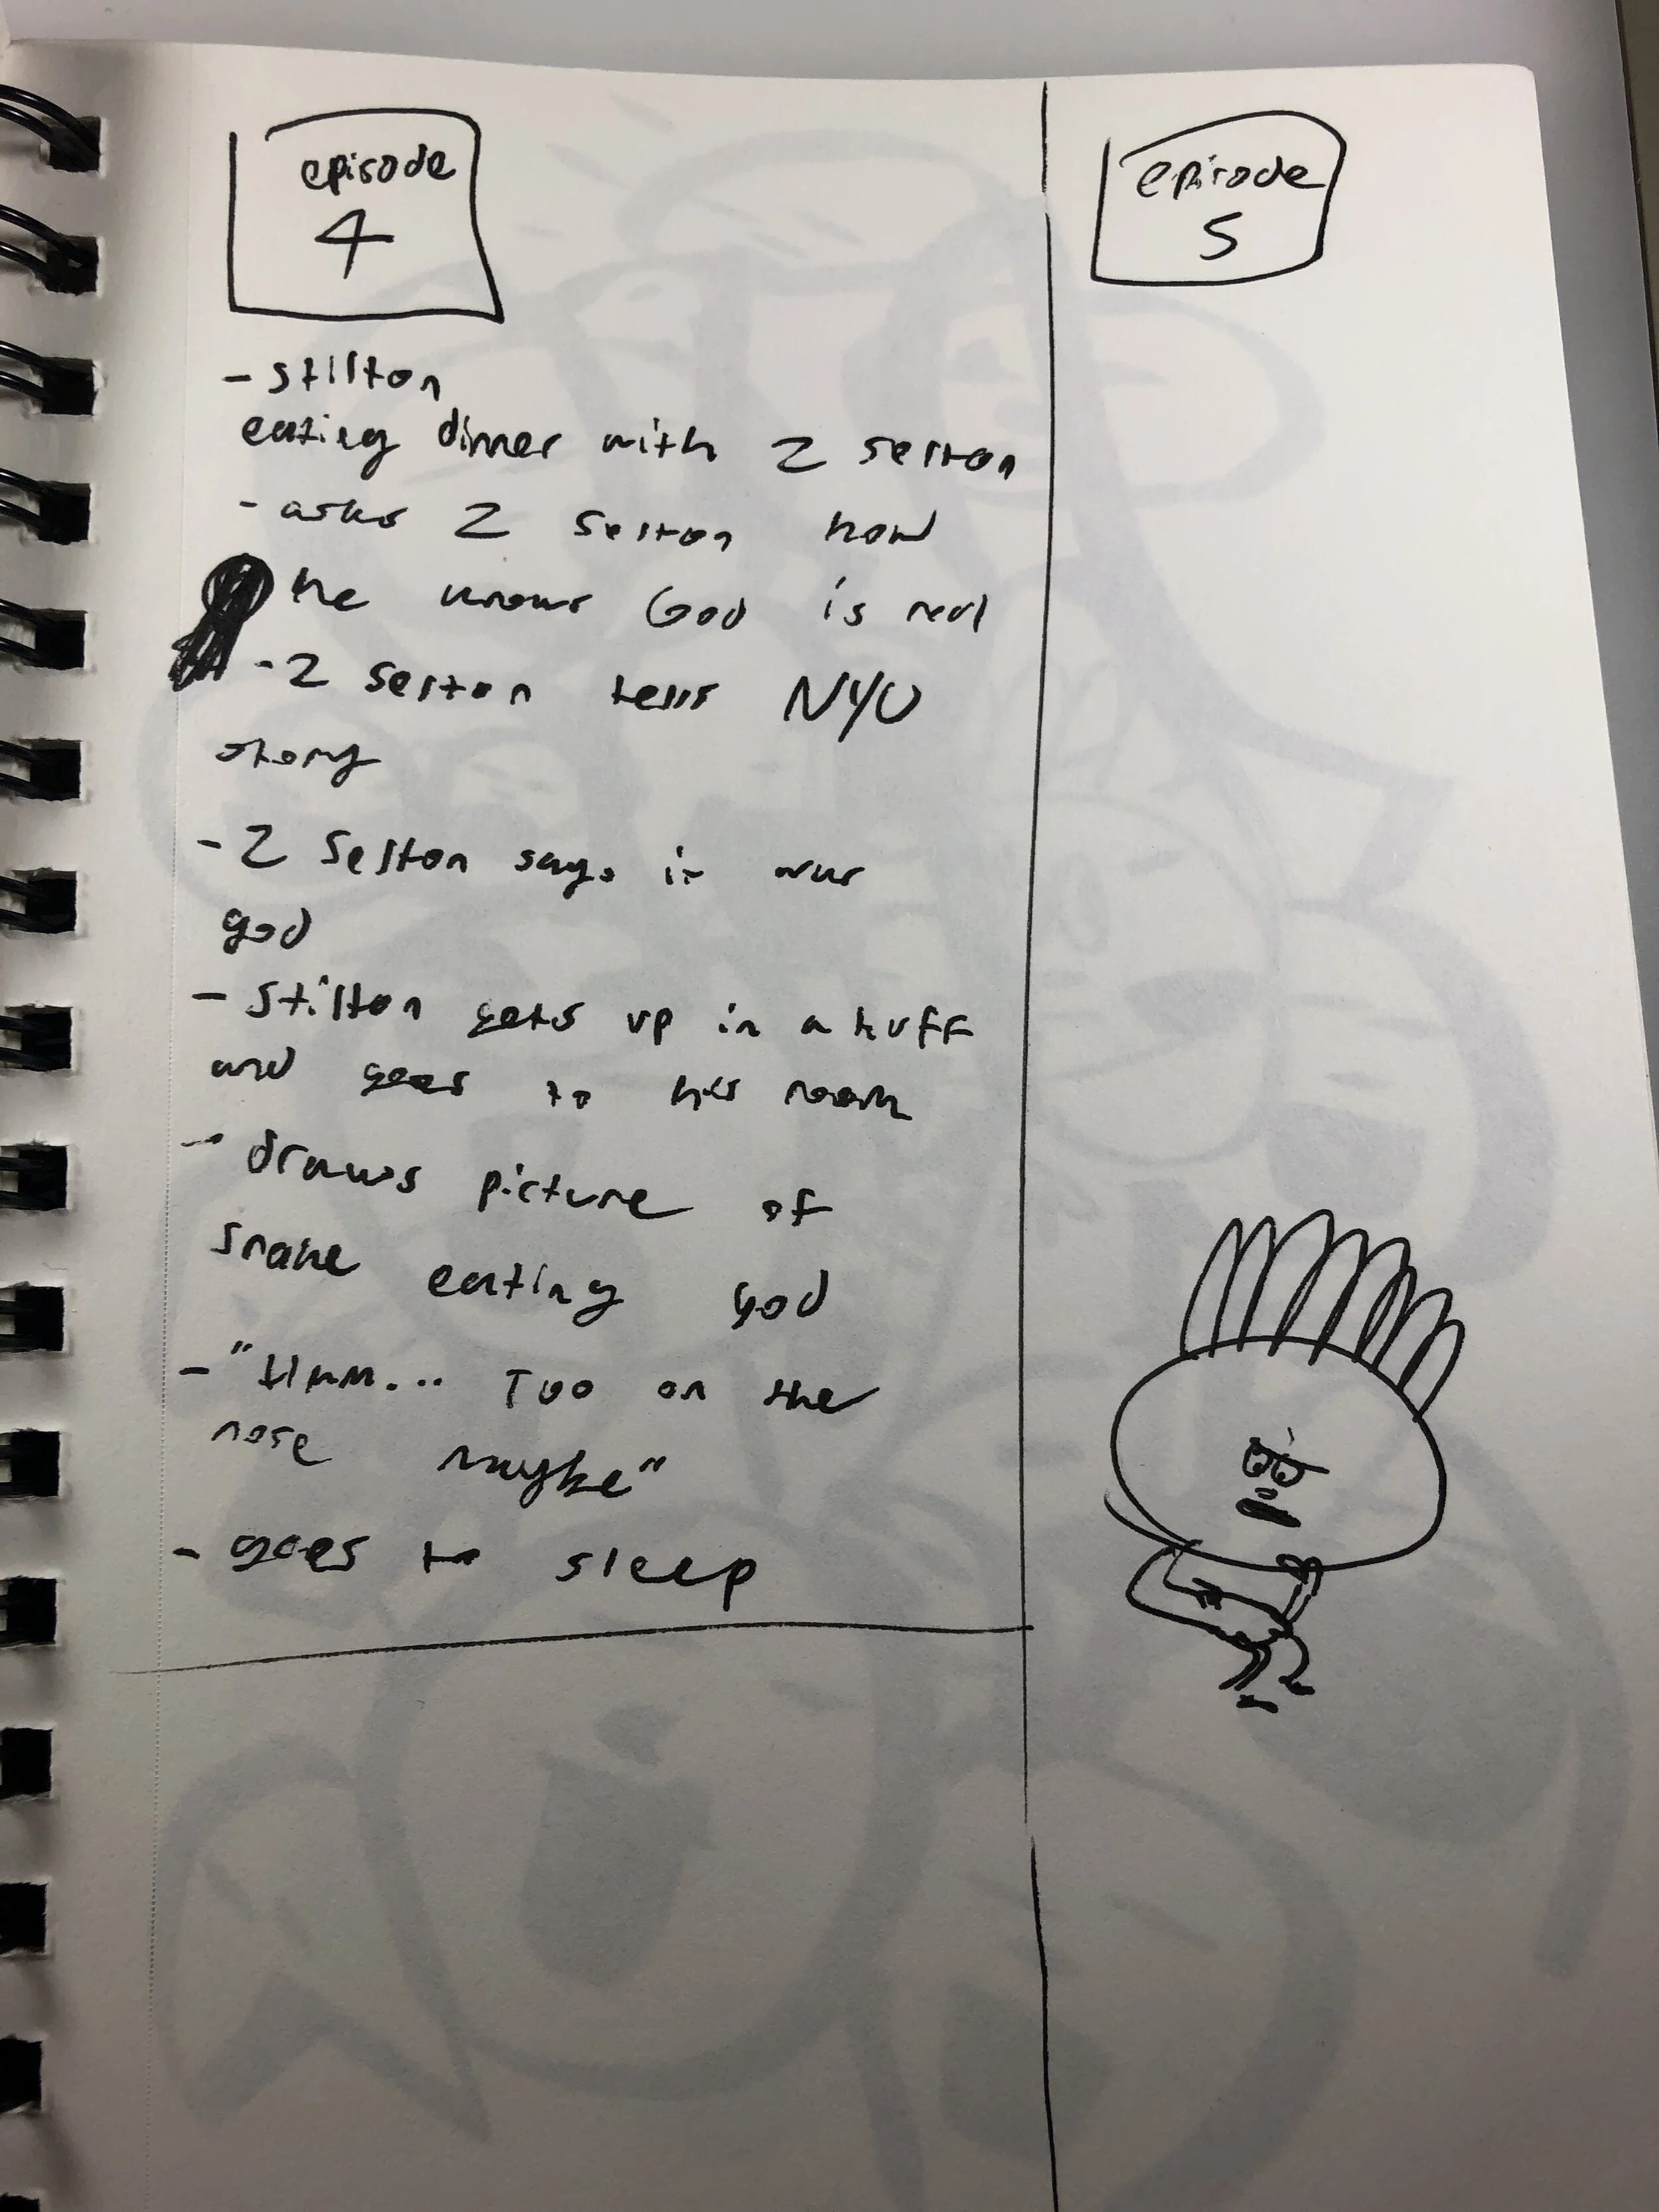 episode
4
- stilton
eating dinner with 2 selton
- asks 2 selton how
he knows God is real
- 2 selton tells NYU
story
- 2 selton says it was
god
- stilton gets up in a huff
and goes to his room
- draws picture of
snake eating god
- "Hmm... Too on the
nose maybe"
- goes to sleep
episode
5